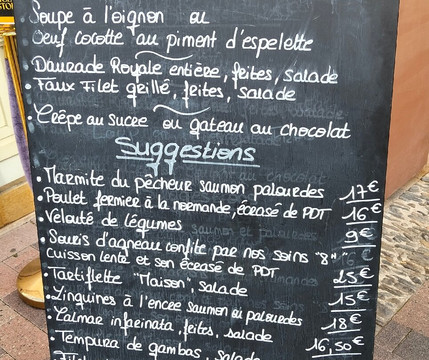 Soupe à l'oignon ou
Oeuf cocotte au piment d'espelette
• Daurade Royale entière, frites, salade
• Faux Filet grillé, frites, salade
• Crêpe au sucre ou gateau au chocolat
Suggestions
• Marmite du pêcheur saumon palourdes 17€
• Poulet fermier à la normande, écrasé de PDT 16€
• Velouté de légumes 9€
• Souris d'agneau confite par nos soins "8H"
Cuisson lente et son écrasé de PDT 25€
• Tartiflette "Maison", salade 15€
• Linguines à l'encre saumon et palourdes 18€
• Calmar à la plancha, frites, salade 16,50€
• Tempura de gambas, salade